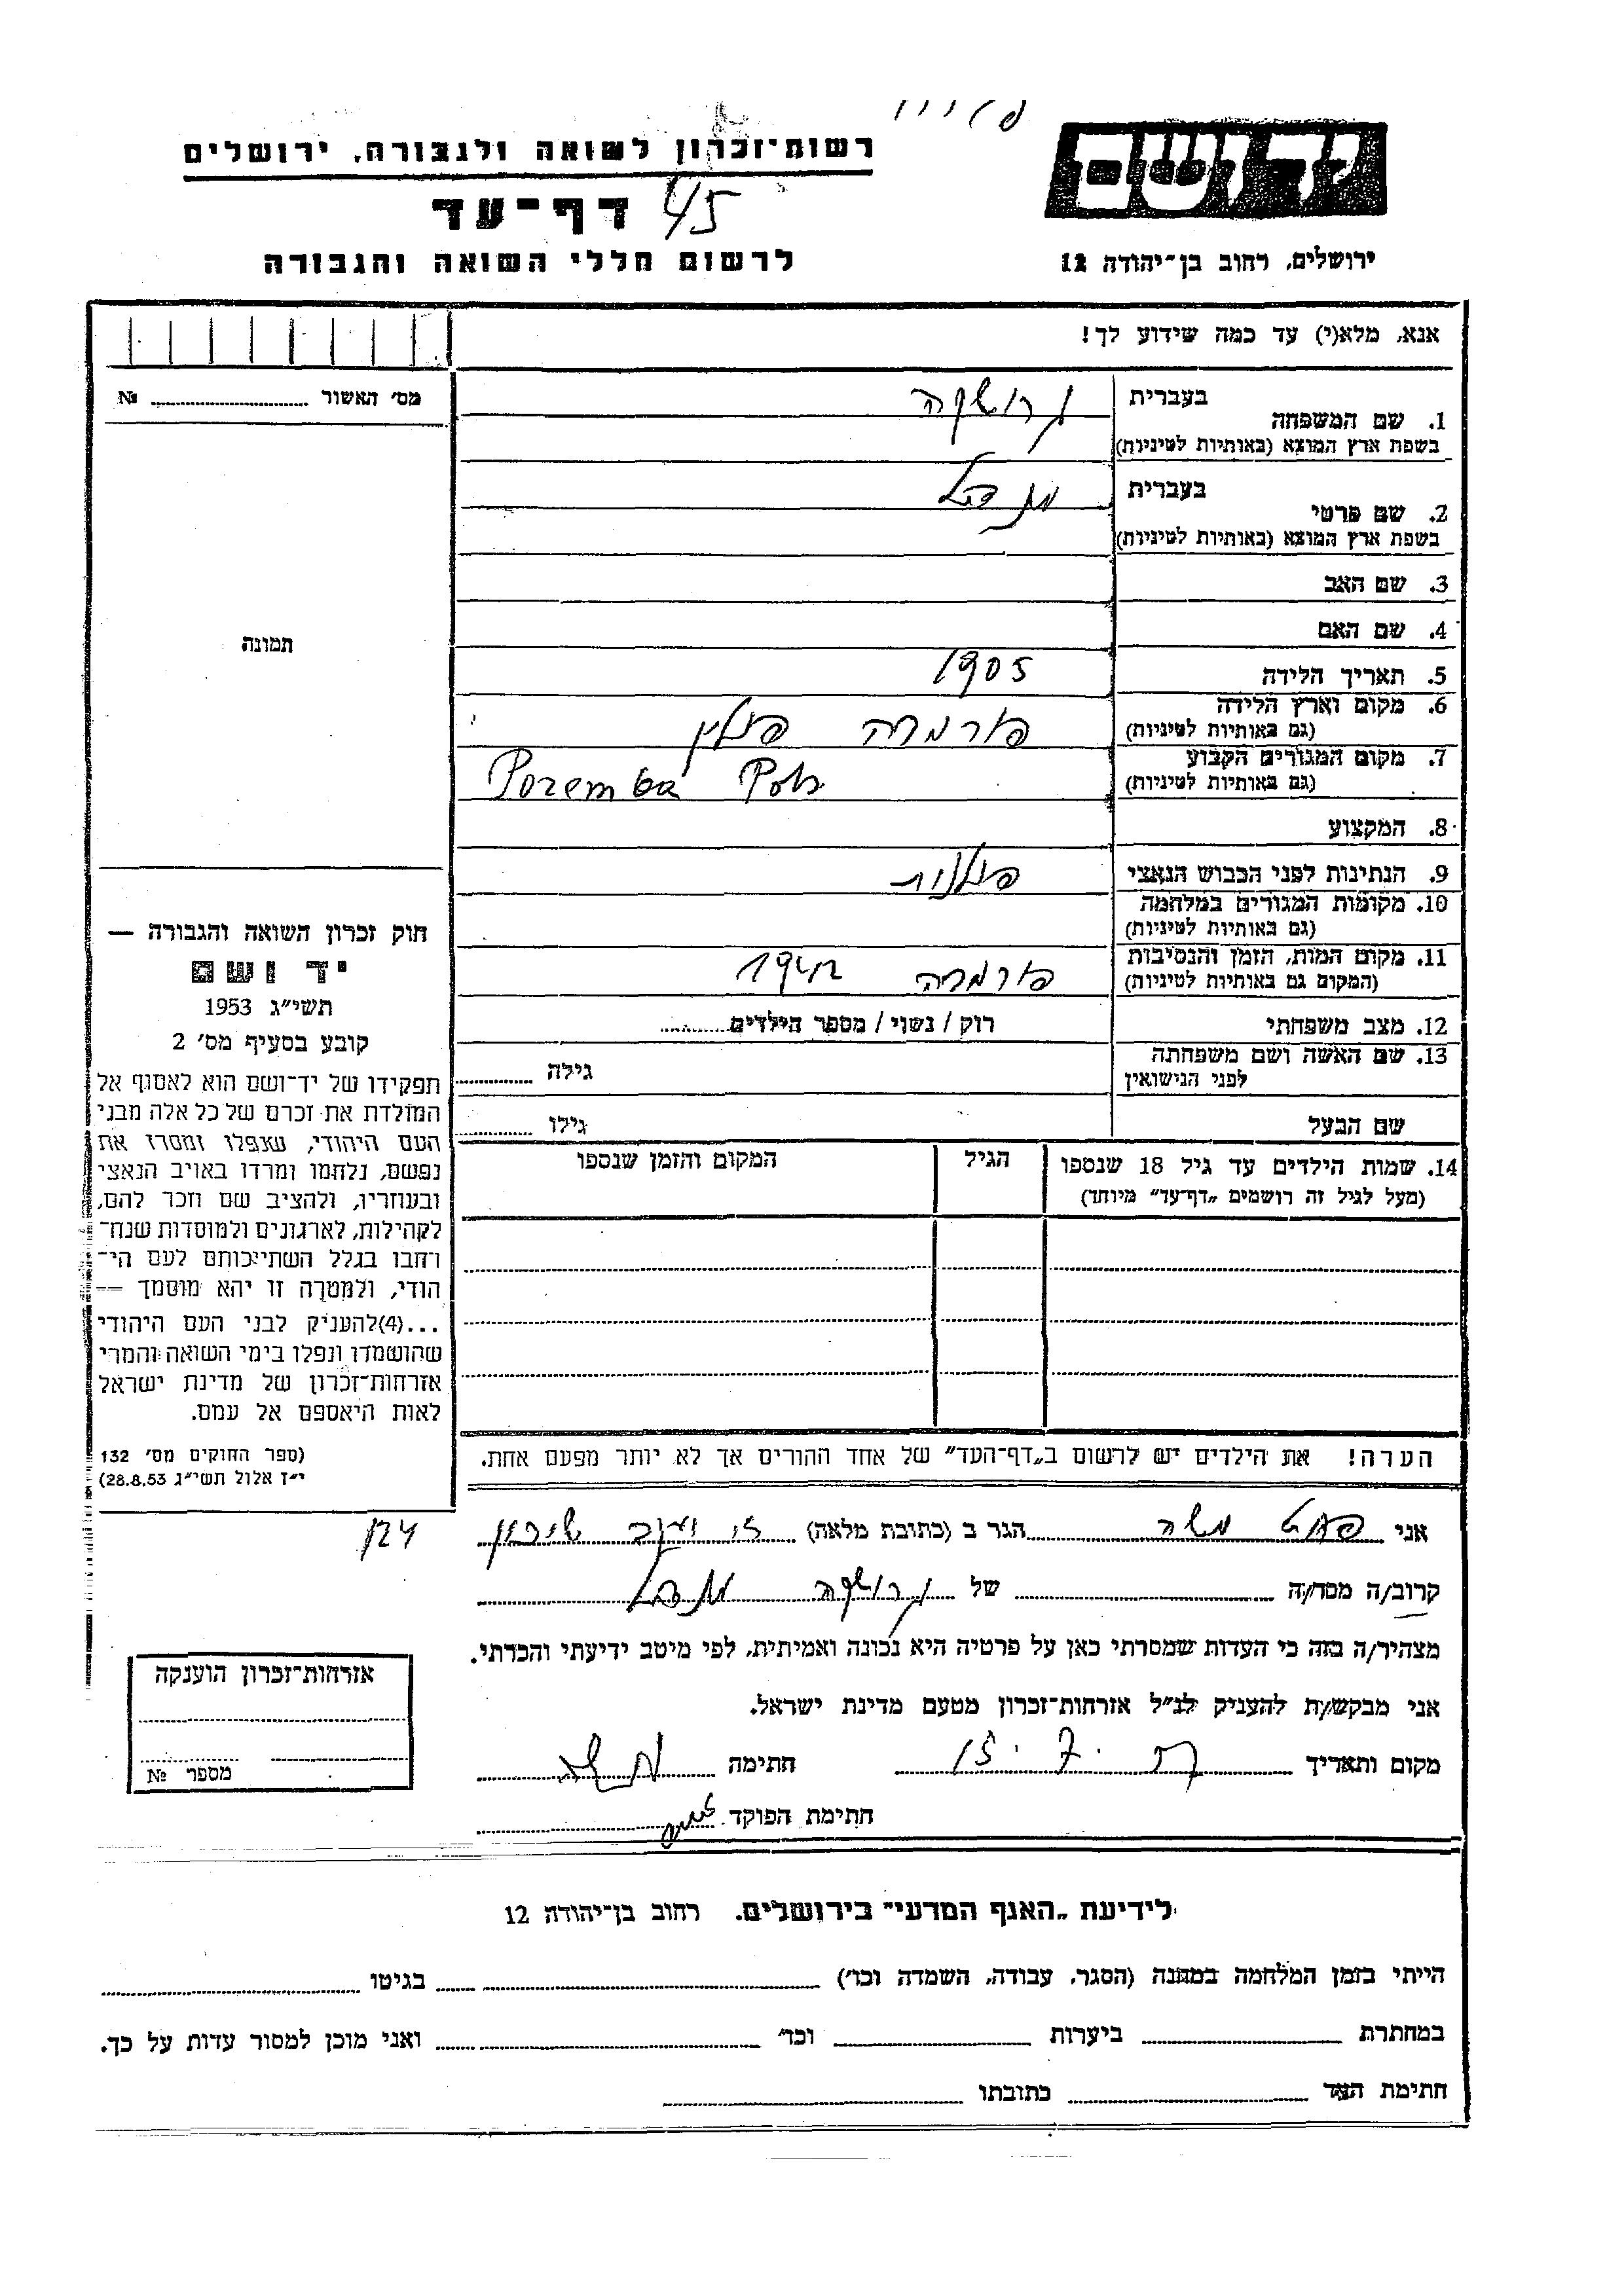 יד ושם
ירושלים, רחוב בן־יהודה 12
רשות־זכרון לשואה ולגבורה, ירושלים
דף־עד 45
לרשום חללי השואה והגבורה
אנא, מלא(י) עד כמה שידוע לך!
מס׳ האשור № 
בעברית
1. שם המשפחה
בשפת ארץ המוצא (באותיות לטיניות)
בעברית
2. שם פרטי
בשפת ארץ המוצא (באותיות לטיניות)
3. שם האב
4. שם האם
5. תאריך הלידה 1905
6. מקום וארץ הלידה
(גם באותיות לטיניות) פורמבה פולין
7. מקום המגורים הקבוע
(גם באותיות לטיניות) Poremba
8. המקצוע
9. הנתינות לפני הכבוש הנאצי פולנית
10. מקומות המגורים במלחמה
(גם באותיות לטיניות)
11. מקום המות, הזמן והנסיבות
(המקום גם באותיות לטיניות) פורמבה 1942
12. מצב משפחתי רוק / נשוי / מספר הילדים
13. שם האשה ושם משפחתה
לפני הנישואין גילה
שם הבעל גילו
14. שמות הילדים עד גיל 18 שנספו הגיל המקום והזמן שנספו
(מעל לגיל זה רושמים „דף־עד״ מיוחד)
הערה! את הילדים יש לרשום ב„דף־העד״ של אחד ההורים אך לא יותר מפעם אחת.
תמונה
חוק זכרון השואה והגבורה —
יד ושם
תשי״ג 1953
קובע בסעיף מס׳ 2
תפקידו של יד־ושם הוא לאסוף אל
המולדת את זכרם של כל אלה מבני
העם היהודי, שנפלו ומסרו את
נפשם, נלחמו ומרדו באויב הנאצי
ובעוזריו, ולהציב שם וזכר להם,
לקהילות, לארגונים ולמוסדות שנח־
רחבו בגלל השתייכותם לעם הי־
הודי, ולמטרה זו יהא מוסמך —
...(4)להעניק לבני העם היהודי
שהושמדו ונפלו בימי השואה והמרי
אזרחות־זכרון של מדינת ישראל
לאות היאספם אל עמם.
(ספר החוקים מס׳ 132
י״ז אלול תשי״ג 28.8.53)
אני משה הגר ב (כתובת מלאה) שיכון
קרוב/ה מסר/ה של
מצהיר/ה בזה כי העדות שמסרתי כאן על פרטיה היא נכונה ואמיתית, לפי מיטב ידיעתי והכרתי.
אני מבקש/ת להעניק לנ״ל אזרחות־זכרון מטעם מדינת ישראל.
מקום ותאריך חתימה
חתימת הפוקד
אזרחות־זכרון הוענקה
מספר №
לידיעת „האגף המדעי״ בירושלים. רחוב בן־יהודה 12
הייתי בזמן המלחמה במחנה (הסגר, עבודה, השמדה וכו׳) בגיטו
במחתרת ביערות וכו׳ ואני מוכן למסור עדות על כך.
חתימת העד כתובתו